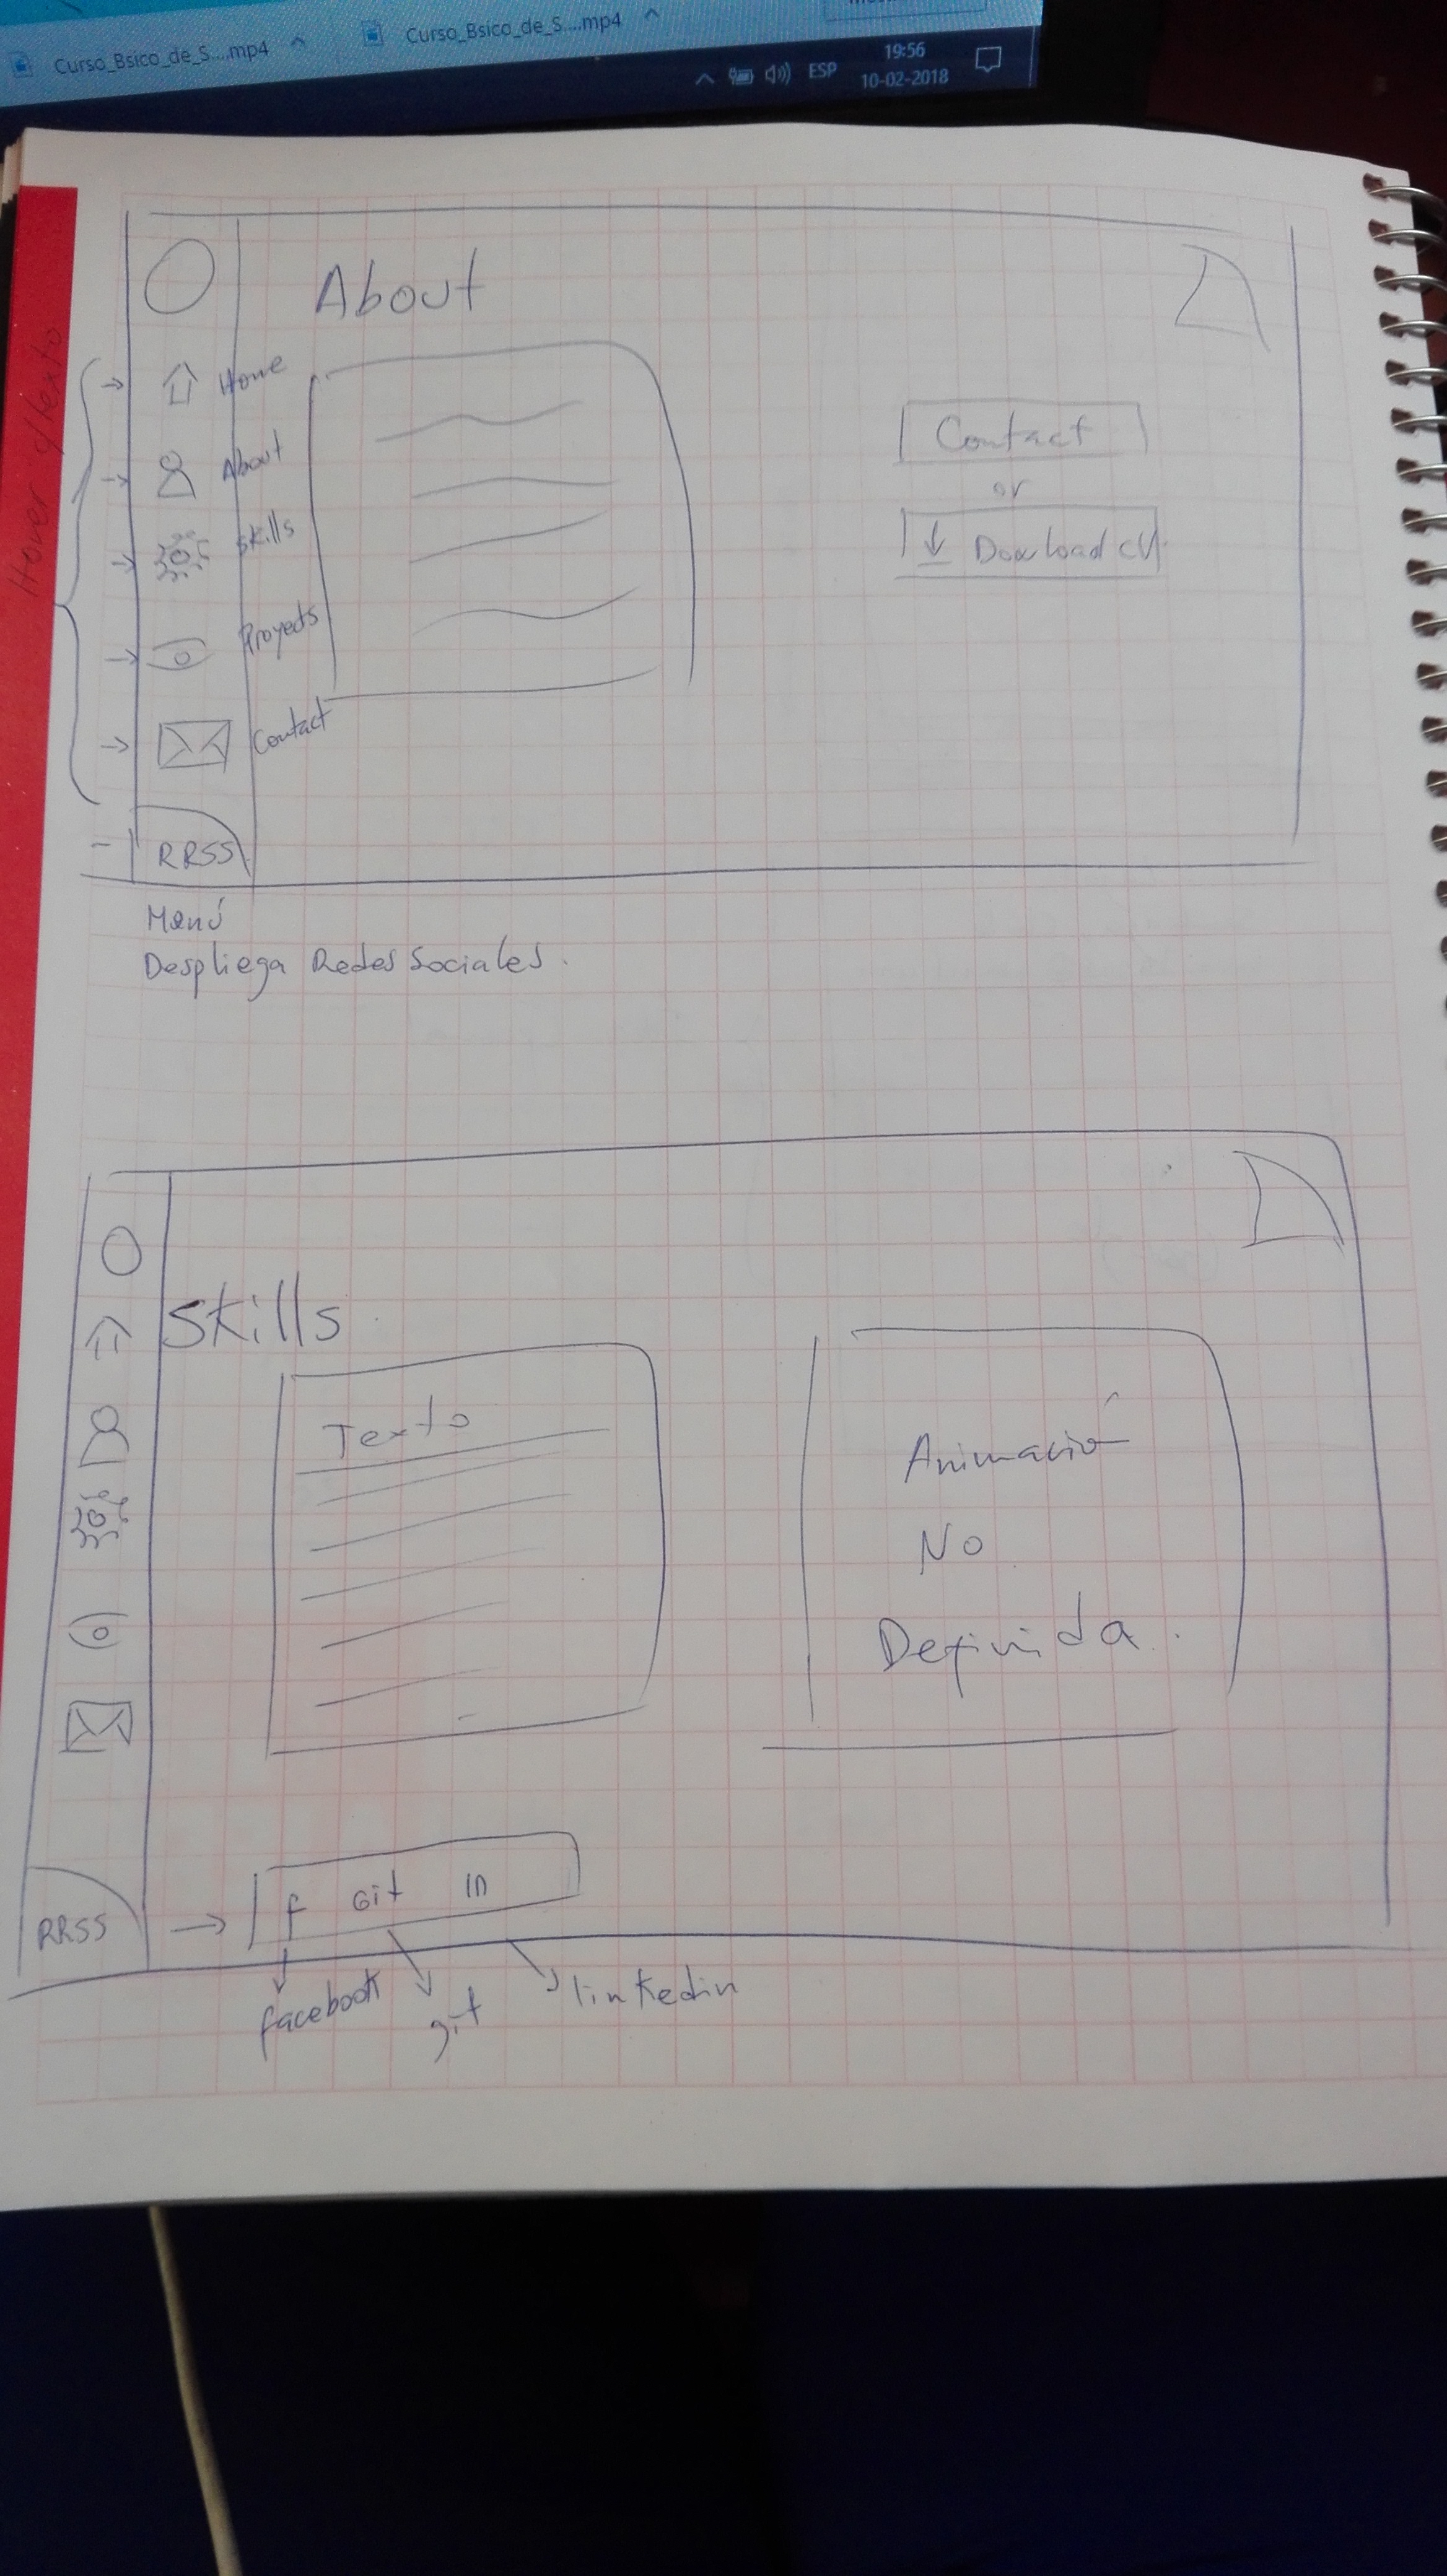 Curso_Bsico_de_S....mp4
Curso_Bsico_de_S....mp4
ESP
19:56
10-02-2018
About
Hover c/texto
Home
About
Skills
Proyects
Contact
RRSS
Contact
or
Download CV
Menú
Despliega Redes Sociales.
Skills
Texto
Animación
No
Definida.
RRSS
f Git in
facebook
git
linkedin